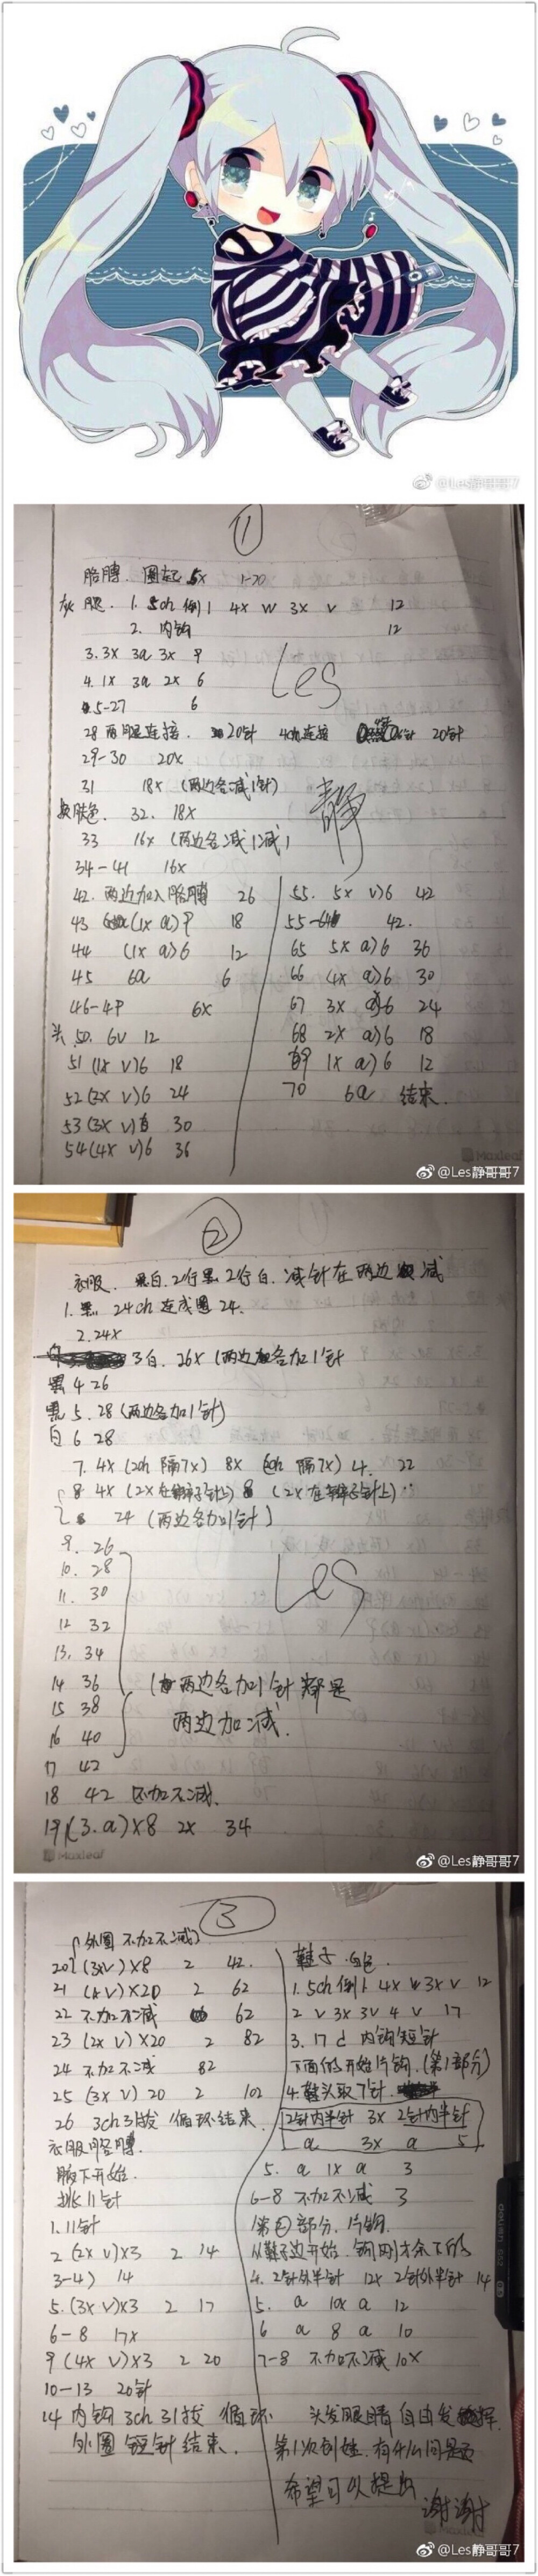 @Les静哥哥7
1
胳膊. 圈起 5x 1-20
灰 腿. 1. 5ch 倒1 4x w 3x v 12
2. 内钩 12
3. 3x 3a 3x 9
4. 1x 3a 2x 6
5-27 6
28 两腿连接. 20针 4ch连接 20针
29-30 20x
31 18x (两边各减1针)
换肤色. 32. 18x
33 16x (两边各减1减)
34-41 16x
42. 两边加入胳膊 26
43 (1x a)9 18
44 (1x a)6 12
45 6a 6
46-49 6x
头 50. 6v 12
51 (1x v)6 18
52 (2x v)6 24
53 (3x v)6 30
54 (4x v)6 36
55. 5x v)6 42
55-64 42.
65 5x a)6 36
66 (4x a)6 30
67 3x a)6 24
68 2x a)6 18
69 1x a)6 12
70 6a 结束.
Les
静
Maxleaf
@Les静哥哥7
2
衣服. 黑白. 2行黑2行白. 减针在两边减
1. 黑 24ch 连成圈 24.
2. 24x
3白. 26x (两边各加1针
黑 4 26
黑 5. 28 (两边各加1针)
白 6 28
7. 4x (2ch 隔7x) 8x (2ch 隔7x) 4. 22
8 4x (2x在辫子针上) 8 (2x在辫子针上)
24 (两边各加1针]
9. 26
10. 28
11. 30
12 32
13. 34
14 36
15 38
16 40
17 42
(两边各加1针 都是
两边加减.
18 42 不加不减.
19 (3. a)x8 2x 34
Les
Maxleaf
@Les静哥哥7
3
(外圈 不加不减)
20 (3xv)x8 2 42.
21 (1x v)x20 2 62
22 不加不减 62
23 (2x v)x20 2 82
24 不加不减 82
25 (3x v) 20 2 102
26 3ch 引拔 循环结束.
衣服胳膊.
腋下开始.
挑11针
1. 11针
2 (2x v)x3 2 14
3-4) 14
5. (3x v)x3 2 17
6-8 17x
9 (4x v)x3 2 20
10-13 20针
14 内钩 3ch 引拔 循环
外圈 短针 结束.
鞋子 白色.
1. 5ch 倒1 4x w 3x v 12
2 v 3x 3v 4 v 17
3. 17 d 内钩短针
下面的开始片钩. (第1部分)
4. 鞋头取7针
2针内半针 3x 2针内半针
a 3x a 5
5. a 1x a 3
6-8 不加不减 3
第②部分. 片钩.
从鞋子边开始. 钩刚才余下的
4. 2针外半针 12x 2针外半针 14
5. a 10x a 12
6 a 8 a 10
7-8 不加不减 10x
头发眼睛自由发挥.
第1次创娃. 有什么问题
希望可以提出
谢谢
@Les静哥哥7